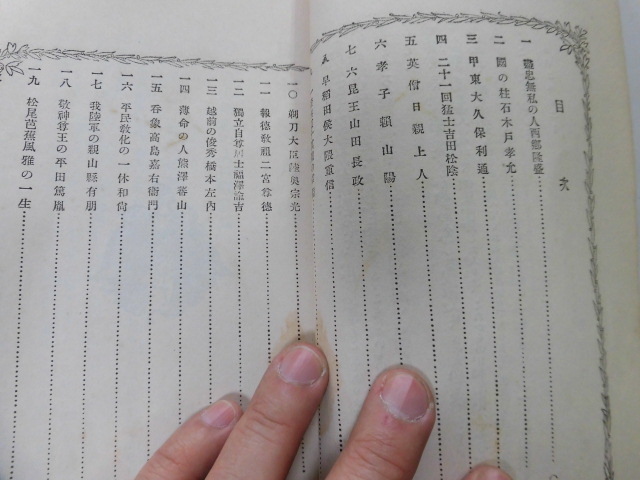 目次
一 盡忠無私の人西郷隆盛
二 國の柱石木戸孝允
三 甲東大久保利通
四 二十一回猛士吉田松陰
五 英僧日親上人
六 孝子頼山陽
七 六昆王山田長政
八 早稲田侯大隈重信
一〇 剃刀大臣陸奥宗光
一一 報德敎祖二宮尊德
一二 獨立自尊居士福澤諭吉
一三 越前の俊秀橋本左內
一四 薄命の人熊澤蕃山
一五 呑象高島嘉右衞門
一六 平民敎化の一休和尙
一七 我陸軍の親山縣有朋
一八 敬神尊王の平田篤胤
一九 松尾芭蕉風雅の一生